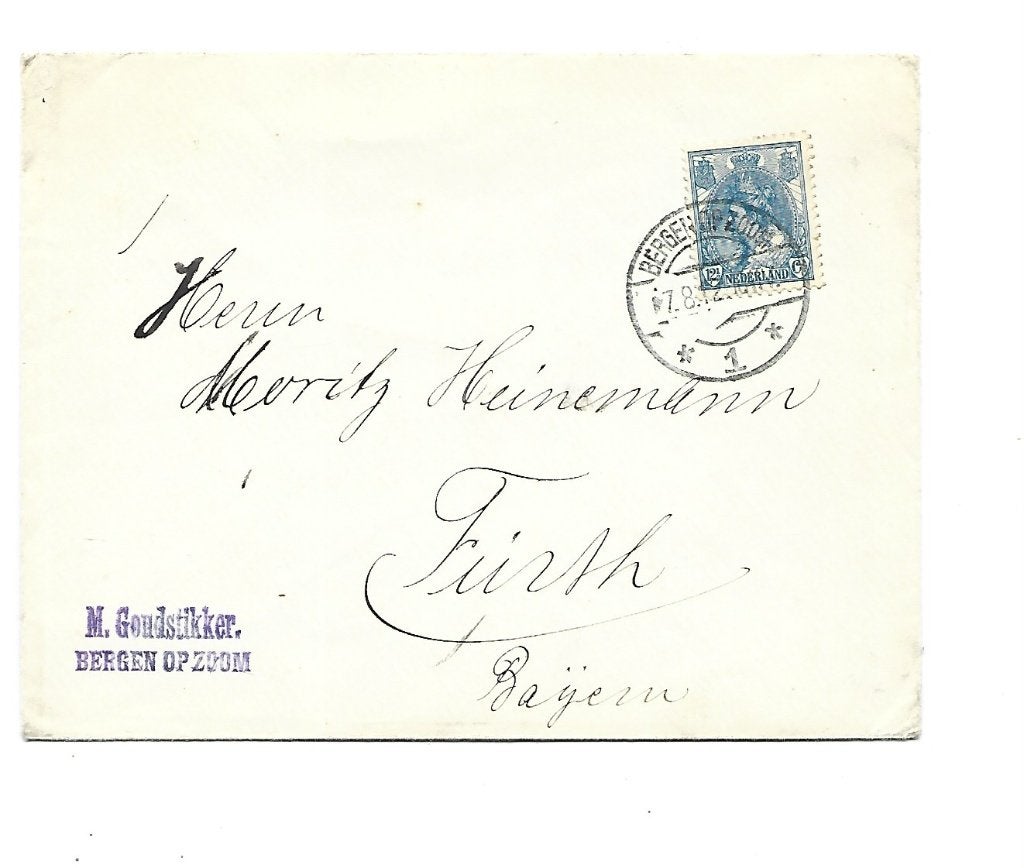 BERGEN OP ZOOM
7.8.12
1
12½ NEDERLAND Ct
Herrn
Moritz Heinemann
Fürth
Bayern
M. Goudstikker.
BERGEN OP ZOOM